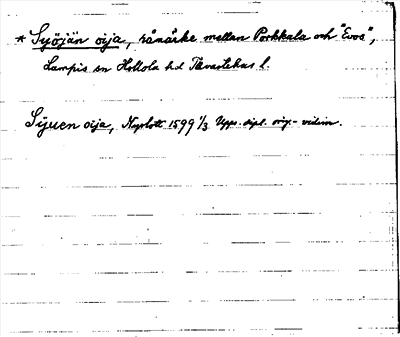 * Syöjän oija, råmärke mellan Porkkala och "Evos",
Lampis sn Hollola hd Tavastehus l.
Sÿuen oija, Nyslott 1599 1/3 Upps. dipl. orig.-vidim.